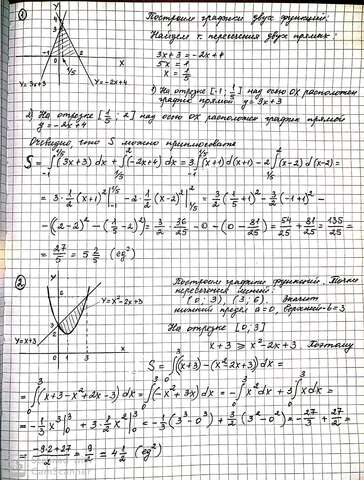 ①
Построим графики двух функций.
Найдем т. пересечения двух прямых:
3x+3 = -2x+4
5x = 1
x = 1/5
1) На отрезке [-1; 1/5] над осью OX расположен
график прямой y = 3x+3
y=3x+3
y=-2x+4
2) На отрезке [1/5; 2] над осью OX расположен график прямой
y = -2x+4
Очевидно, что S можно
S = ∫_{-1}^{1/5} (3x+3) dx + ∫_{1/5}^{2} (-2x+4) dx = 3 ∫_{-1}^{1/5} (x+1) d(x+1) - 2 ∫_{1/5}^{2} (x-2) d(x-2) =
= 3 · 1/2 (x+1)² |_{-1}^{1/5} - 2 · 1/2 (x-2)² |_{1/5}^{2} = 3/2 (1/5+1)² - 3/2 (-1+1)² -
- ((2-2)² - (1/5-2)²) = 3/2 · 36/25 - 0 - (0 - 81/25) = 54/25 + 81/25 = 135/25 =
= 27/5 = 5 2/5 (ед²)
②
Построим графики функций. Точки
пересечения линий:
(0; 3), (3; 6). Значит
нижний предел a=0, верхний b=3
На отрезке [0; 3]
x+3 ≥ x²-2x+3. Поэтому
y=x+3
y=x²-2x+3
S = ∫_{0}^{3} ((x+3)-(x²-2x+3)) dx =
= ∫_{0}^{3} (x+3-x²+2x-3) dx = ∫_{0}^{3} (-x²+3x) dx = -∫_{0}^{3} x² dx + 3 ∫_{0}^{3} x dx =
= -1/3 x³ |_{0}^{3} + 3 · 1/2 x² |_{0}^{3} = -1/3 (3³-0³) + 3/2 (3²-0²) = -27/3 + 27/2 =
= (-9·2+27)/2 = 9/2 = 4 1/2 (ед²)